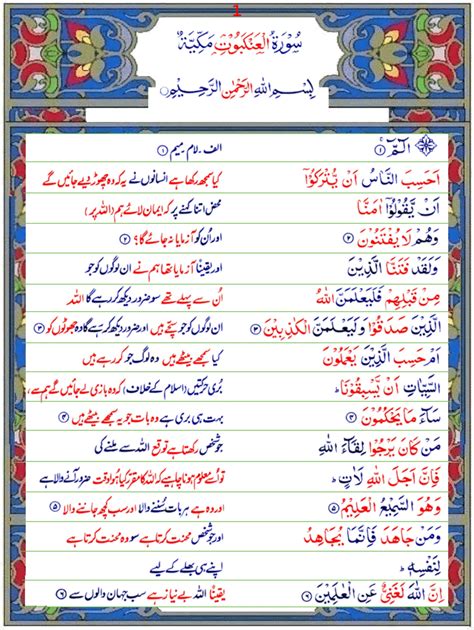 1
سُوْرَةُ الْعَنْكَبُوْتِ مَكِّيَّةٌ
بِسْمِ اللهِ الرَّحْمٰنِ الرَّحِيْمِ
الٓمّٓ ۚ ﴿۱﴾ الف۔ لام۔ میم ﴿۱﴾
اَحَسِبَ النَّاسُ اَنْ يُّتْرَكُوْۤا کیا سمجھ رکھا ہے انسانوں نے یہ کہ وہ چھوڑ دیے جائیں گے
اَنْ يَّقُوْلُوْۤا اٰمَنَّا محض اتنا کہنے پر کہ ایمان لائے ہم (اللہ پر)
وَهُمْ لَا يُفْتَنُوْنَ ﴿۲﴾ اور اُن کو آزمایا نہ جائے گا؟ ﴿۲﴾
وَلَقَدْ فَتَنَّا الَّذِيْنَ اور یقیناً آزمایا تھا ہم نے ان لوگوں کو جو
مِنْ قَبْلِهِمْ فَلَيَعْلَمَنَّ اللهُ اُن سے پہلے تھے سو ضرور دیکھ کر رہے گا اللہ
الَّذِيْنَ صَدَقُوْا وَلَيَعْلَمَنَّ الْكٰذِبِيْنَ ﴿۳﴾ ان لوگوں کو جو سچے ہیں اور ضرور دیکھ کر رہے گا وہ جھوٹوں کو ﴿۳﴾
اَمْ حَسِبَ الَّذِيْنَ يَعْمَلُوْنَ کیا سمجھے بیٹھے ہیں وہ لوگ جو کر رہے ہیں
السَّيِّاٰتِ اَنْ يَّسْبِقُوْنَا ؕ بُری حرکتیں (اسلام کے خلاف) کہ وہ بازی لے جائیں گے ہم سے،
سَآءَ مَا يَحْكُمُوْنَ ﴿۴﴾ بہت ہی بری ہے وہ بات جو یہ سمجھے بیٹھے ہیں ﴿۴﴾
مَنْ كَانَ يَرْجُوْا لِقَآءَ اللهِ جو شخص رکھتا ہے توقع اللہ سے ملنے کی
فَاِنَّ اَجَلَ اللهِ لَاٰتٍ ؕ تو اُسے معلوم ہونا چاہیے کہ اللہ کا مقرر کیا ہوا وقت ضرور آنے والا ہے
وَهُوَ السَّمِيْعُ الْعَلِيْمُ ﴿۵﴾ اور وہ ہے ہر بات سُننے والا اور سب کچھ جاننے والا ﴿۵﴾
وَمَنْ جَاهَدَ فَاِنَّمَا يُجَاهِدُ اور جو شخص محنت کرتا ہے سو وہ محنت کرتا ہے
لِنَفْسِهٖ ؕ اپنے ہی بھلے کے لیے
اِنَّ اللهَ لَغَنِىٌّ عَنِ الْعٰلَمِيْنَ ﴿۶﴾ یقیناً اللہ بے نیاز ہے سب جہان والوں سے ﴿۶﴾